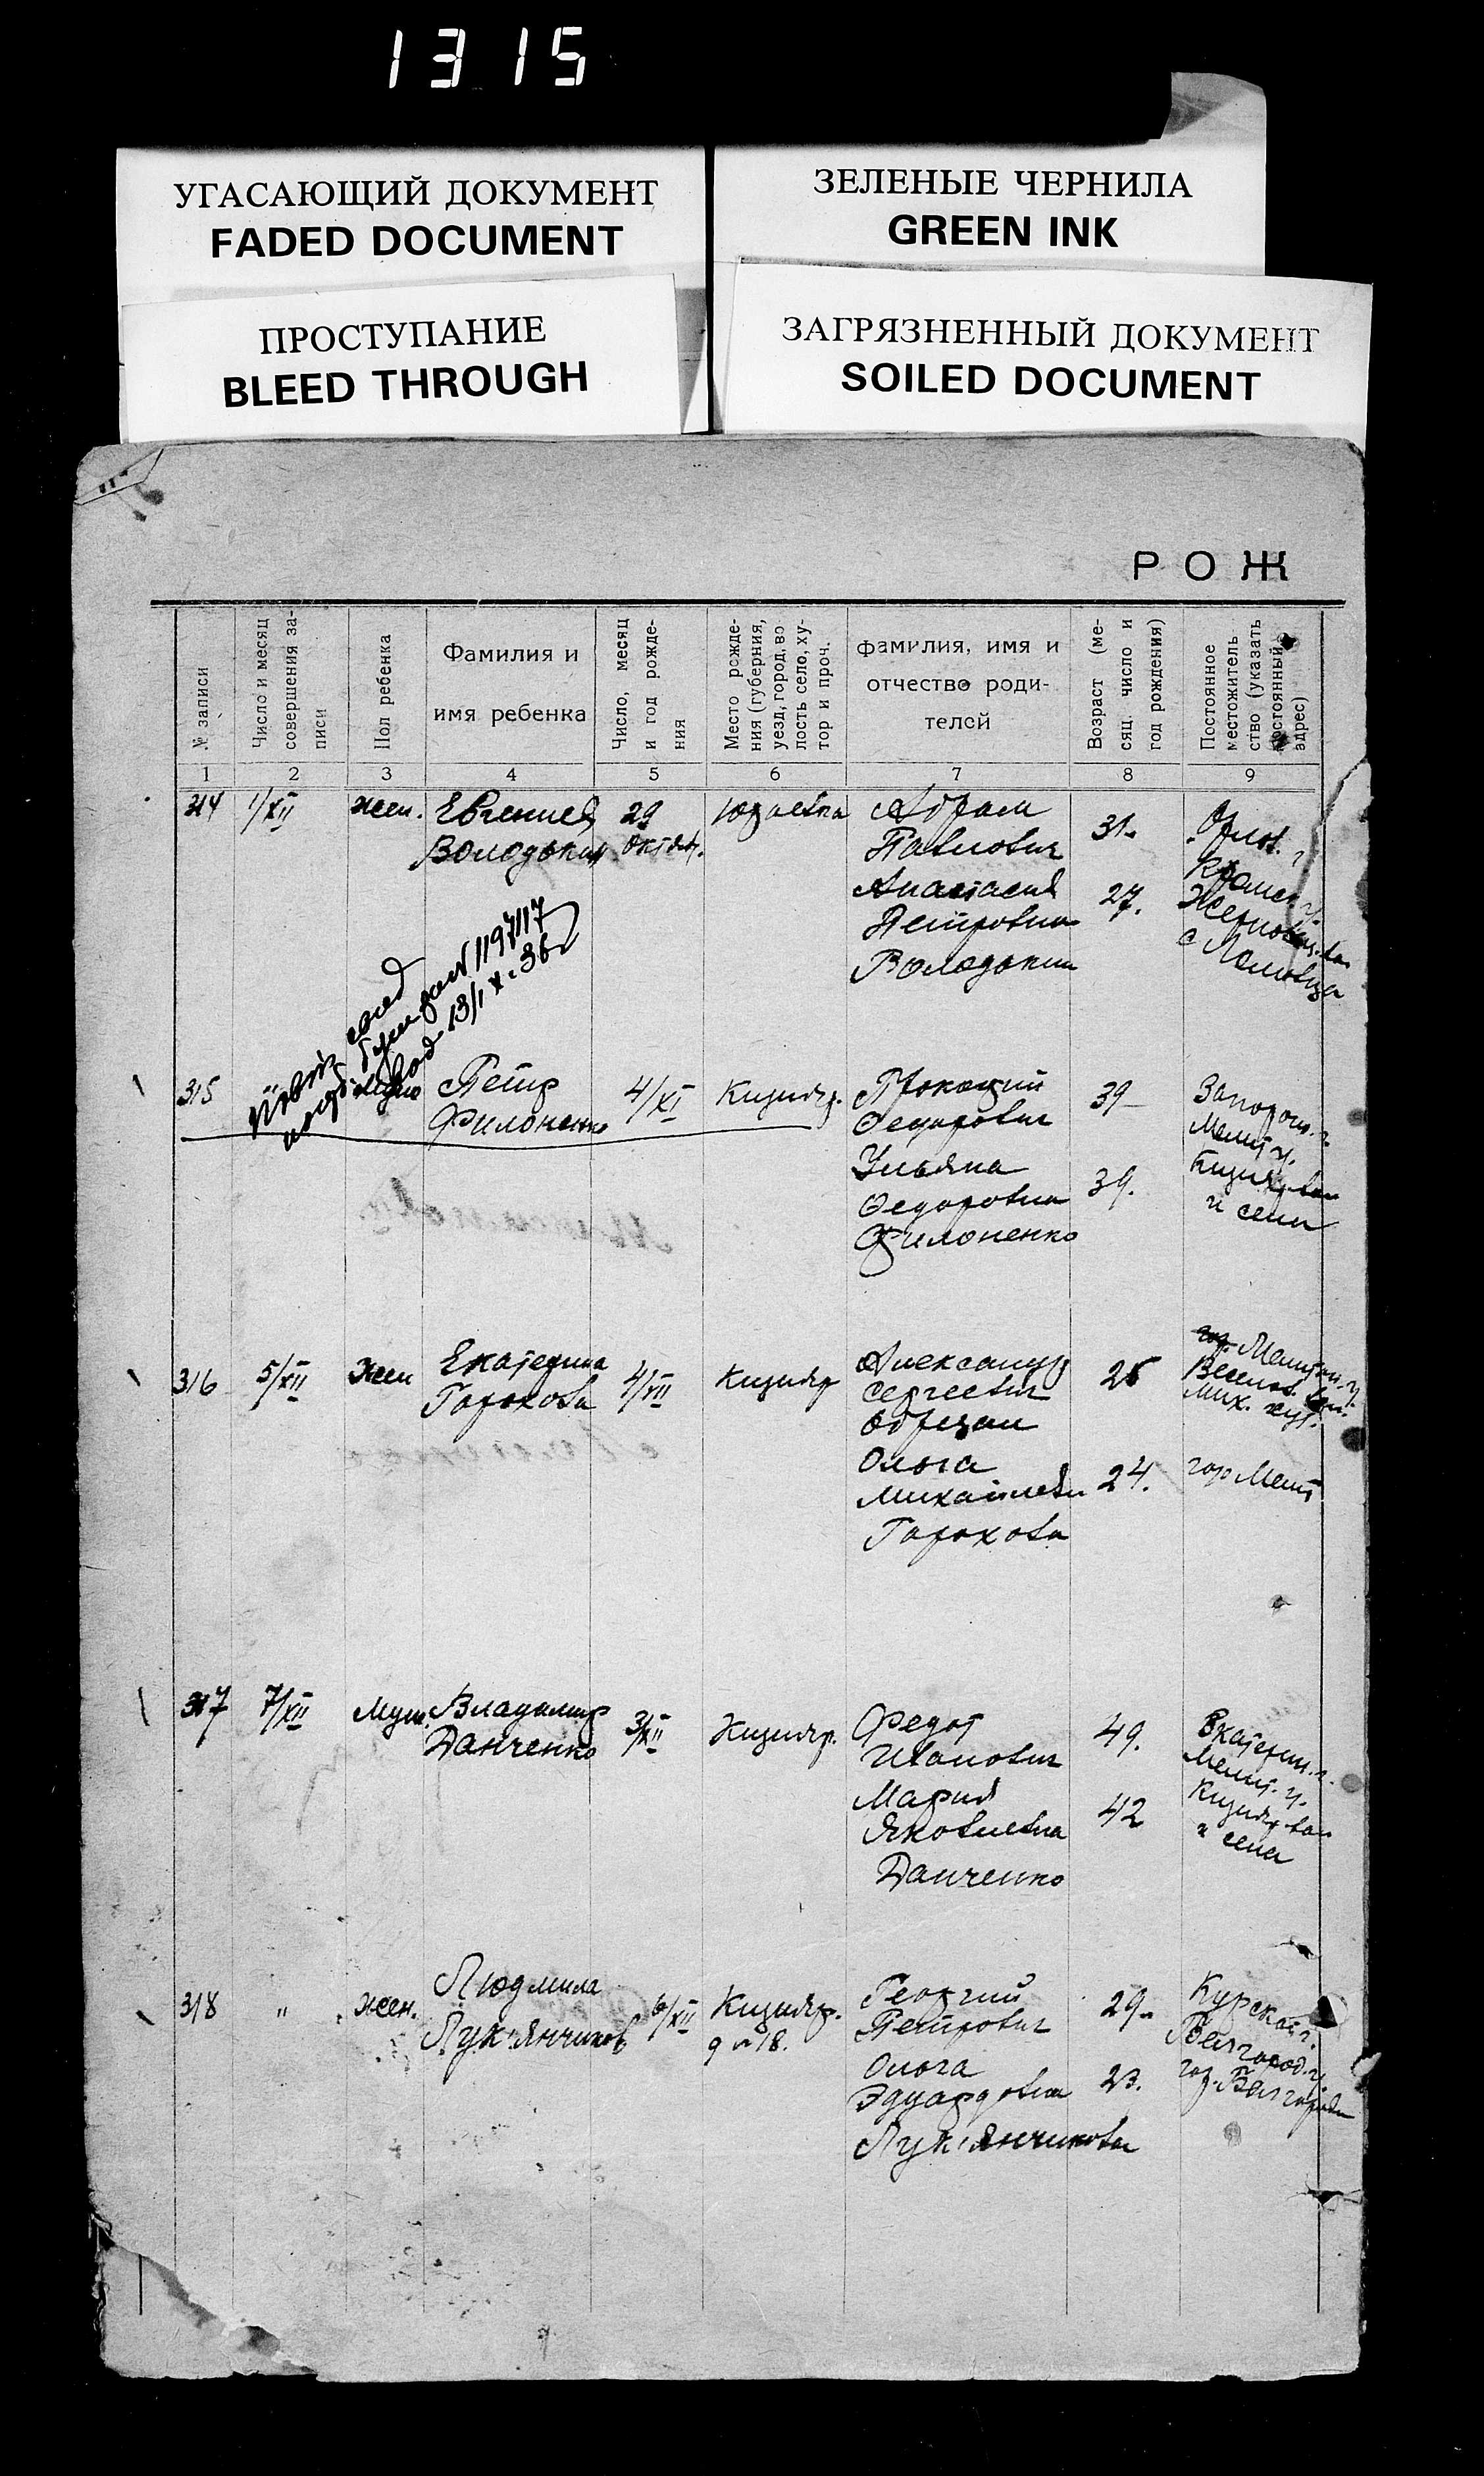 1315
УГАСАЮЩИЙ ДОКУМЕНТ
FADED DOCUMENT
ЗЕЛЕНЫЕ ЧЕРНИЛА
GREEN INK
ПРОСТУПАНИЕ
BLEED THROUGH
ЗАГРЯЗНЕННЫЙ ДОКУМЕНТ
SOILED DOCUMENT
РОЖ
№ записи
Число и месяц
совершения за-
писи
Пол ребенка
Фамилия и
имя ребенка
Число, месяц
и год рожде-
ния
Место рожде-
ния (губерния,
уезд, город, во
лость село, ху-
тор и проч.
Фамилия, имя и
отчество роди-
телей
Возраст (ме-
сяц. число и
год рождения)
Постоянное
местожитель
ство (указать
постоянный
адрес)
1 2 3 4 5 6 7 8 9
314 1/XII жен.
Евгения
Володькин
29
октяб.
Абрам
Павлович
31
Анастасия
Петровна
27.
Володькин
Орлов. г.
с
315
Петр
Филоненко
4/XI
Кизияр.
Федорович
39
Ульяна
Федоровна
39.
Филоненко
Запорож. г.
Мелит у.
Кизияр. вол
и села
316 5/XII жен
Екатерина
Горохова
4/XII
Кизияр
Александр
Сергеевич
Ольга
24.
Горохова
Мелитоп. у.
Весел. вол.
Мих. хут.
гор Мелит
317 7/XII Муж.
Владимир
Данченко
3/XII
Кизияр.
Федот
Иванович
49.
Мария
Яковлевна
42
Данченко
Екатерин. г.
Мелит. у.
Кизияр. вол
и села
318 " жен.
Людмила
Лук'янчиков
6/XII
Кизияр.
д № 18.
Георгий
Петрович
29
Ольга
Эдуардовна
23.
Лук'янчиковы
Курской г.
Белгород. у.
гор. Белгород